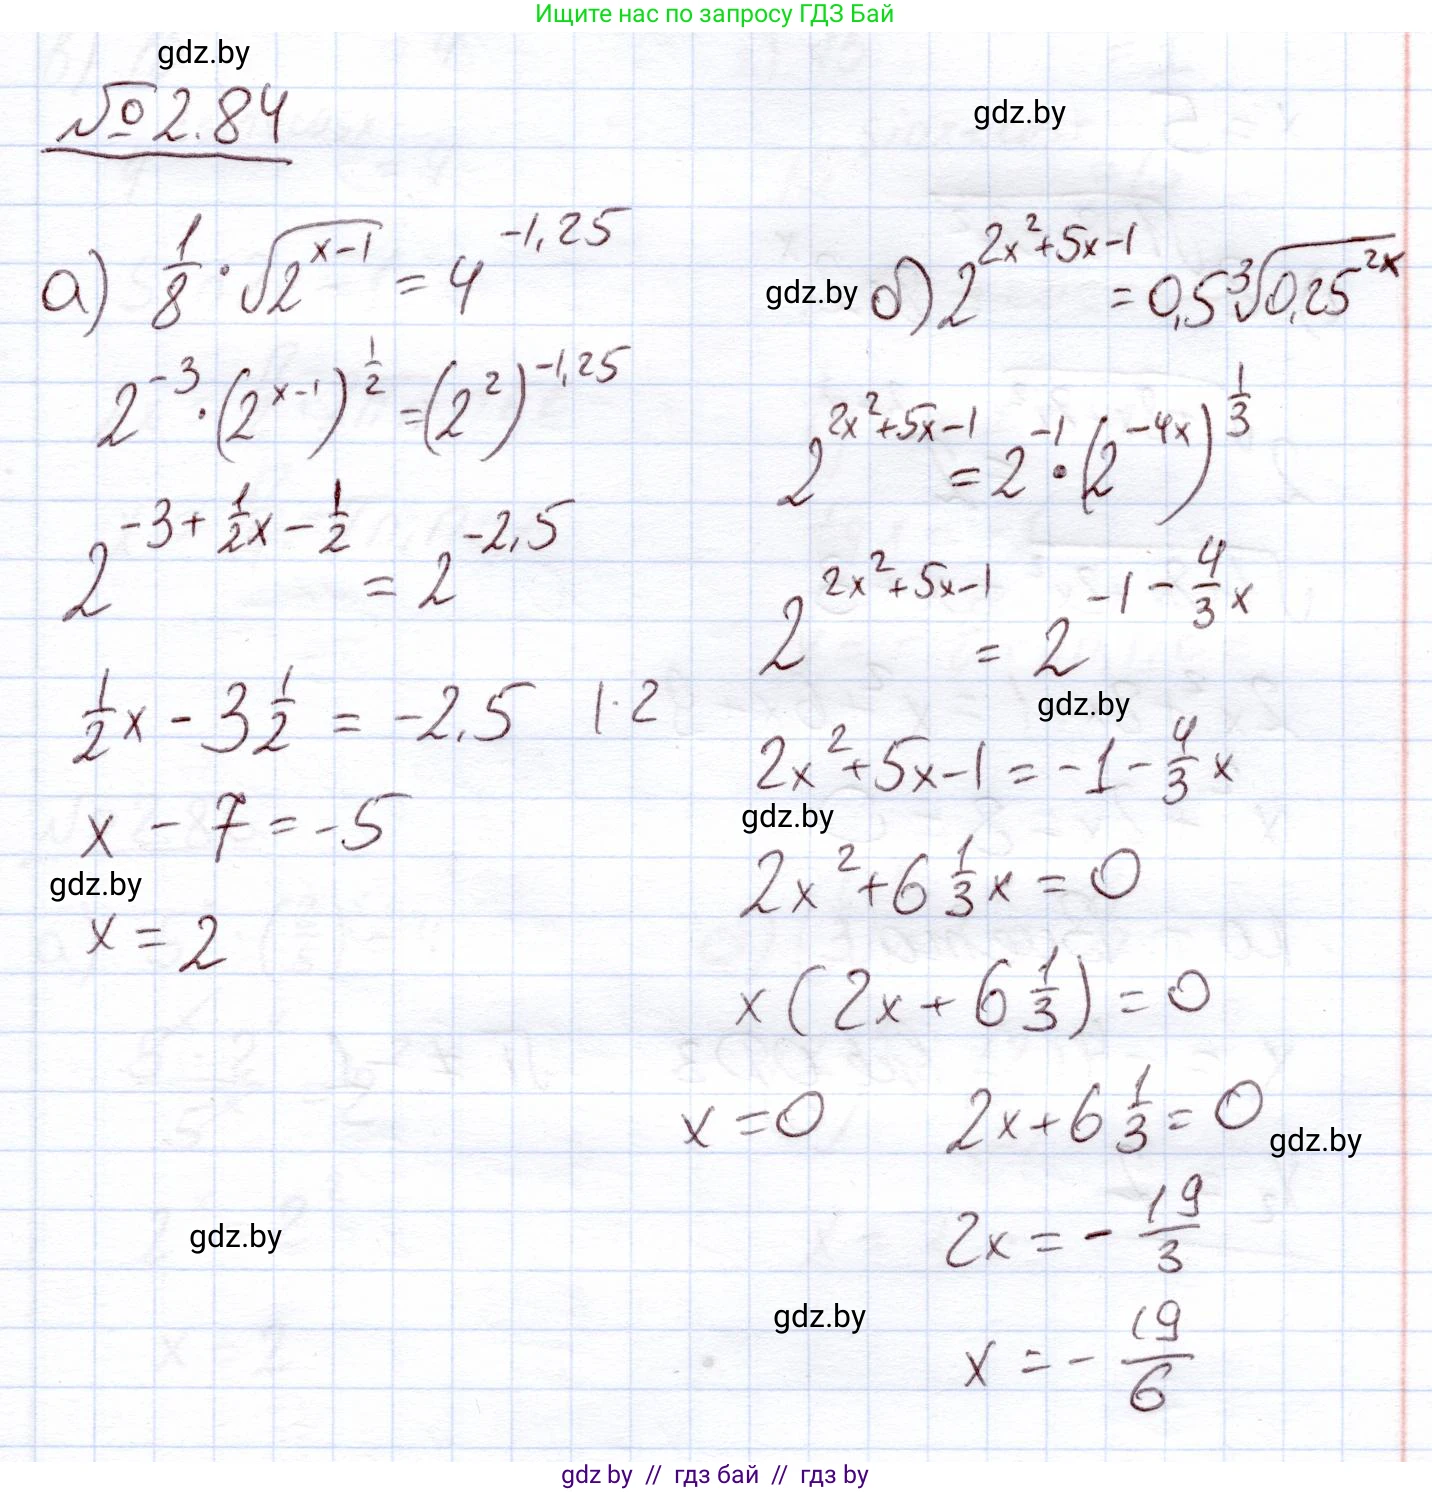 Ищите нас по запросу ГДЗ Бай
gdz.by
№ 2.84
gdz.by
а) 1/8 · √(2^(x-1)) = 4^(-1,25)
2^(-3) · (2^(x-1))^(1/2) = (2^2)^(-1,25)
2^(-3 + 1/2 x - 1/2) = 2^(-2,5)
1/2 x - 3 1/2 = -2,5 | · 2
x - 7 = -5
gdz.by
x = 2
gdz.by
gdz.by
б) 2^(2x^2+5x-1) = 0,5 ∛(0,25^(2x))
2^(2x^2+5x-1) = 2^(-1) · (2^(-4x))^(1/3)
2^(2x^2+5x-1) = 2^(-1 - 4/3 x)
gdz.by
2x^2+5x-1 = -1 - 4/3 x
gdz.by
2x^2 + 6 1/3 x = 0
x (2x + 6 1/3) = 0
x = 0 2x + 6 1/3 = 0
gdz.by
2x = - 19/3
gdz.by
x = - 19/6
gdz by // гдз бай // гдз by